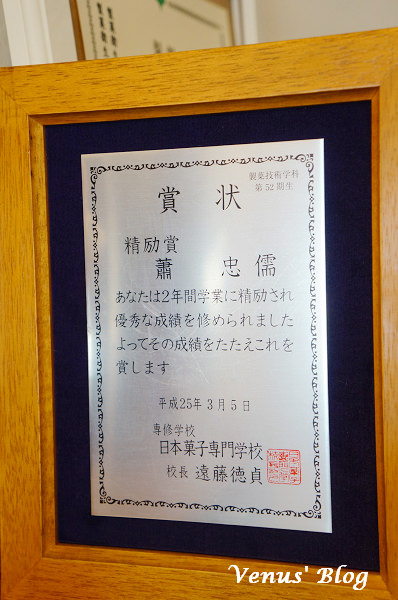 製菓技術学科
第52期生
賞 状
精励賞
蕭 忠儒
あなたは2年間学業に精励され
優秀な成績を修められました
よってその成績をたたえこれを
賞します
平成25年3月5日
専修学校
日本菓子専門学校
校長 遠藤徳貞
Venus' Blog